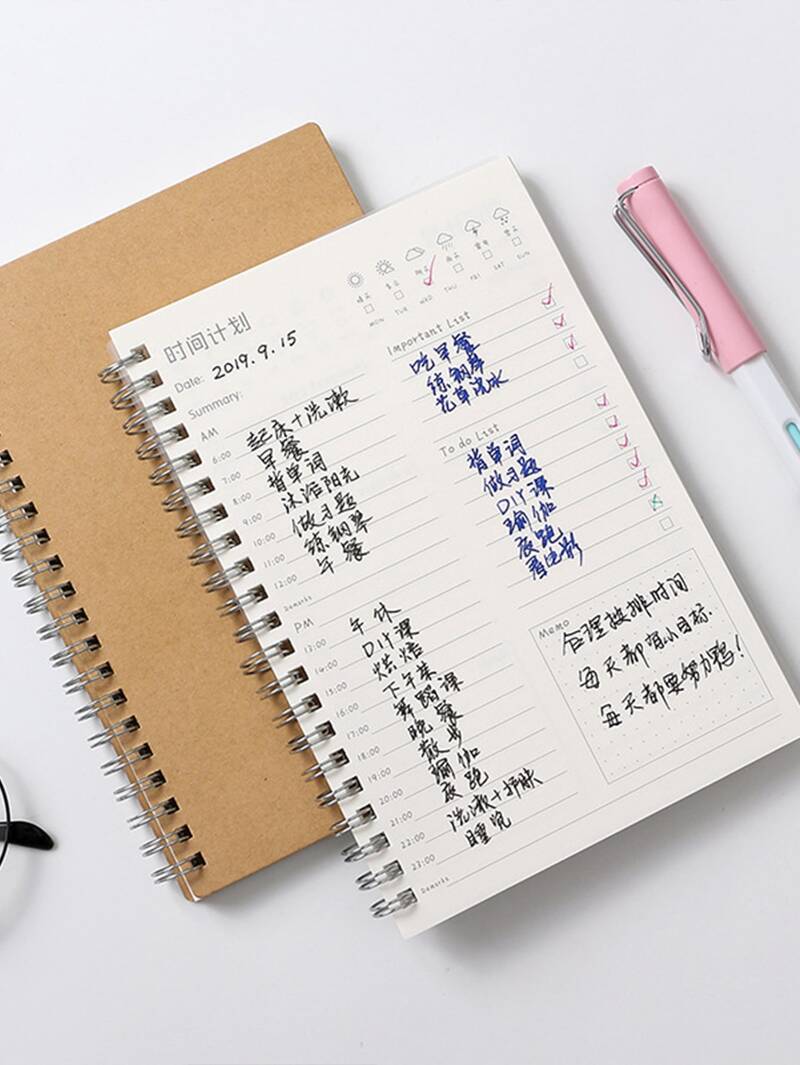 时间计划
Date: 2019.9.15
Summary:
晴天 多云 阴天 雨天 雷雨 雪天
MON TUE WED THU FRI SAT SUN
AM
6:00 起床+洗漱
7:00 早餐
8:00 背单词
9:00 沐浴阳光
10:00 做习题
11:00 练钢琴
12:00 午餐
Remarks
PM
13:00 午休
14:00 DIY课
15:00 烘焙
16:00 下午茶
17:00 舞蹈课
18:00 晚餐
19:00 散步
20:00 瑜伽
21:00 夜跑
22:00 洗漱+护肤
23:00 睡觉
Remarks
Important List
吃早餐
练钢琴
花草浇水
To do List
背单词
做习题
DIY课
瑜伽
夜跑
看电影
Memo
合理安排时间
每天都有小目标
每天都要努力鸭!